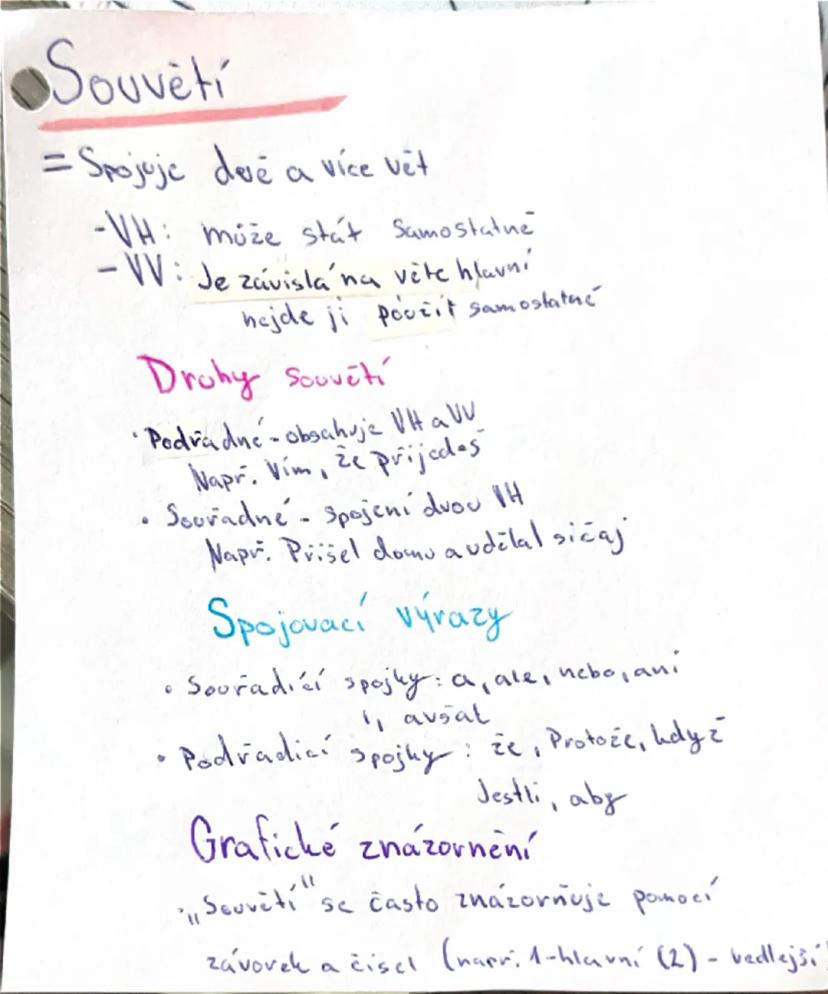 Souvětí
= Spojuje dvě a více vět
- VH: může stát samostatně
- VV: Je závislá na větě hlavní
nejde ji použít samostatně
Druhy souvětí
• Podřadné - obsahuje VH a VV
Např. Vím, že přijedeš
• Souřadné - spojení dvou VH
Např. Přišel domu a udělal si čaj
Spojovací výrazy
• Souřadící spojky: a, ale, nebo, ani
i, avšak
• Podřadicí spojky: že, Protože, když
Jestli, aby
Grafické znázornění
• „Souvětí" se často znázorňuje pomocí
závorek a čísel (např. 1-hlavní (2) - vedlejší